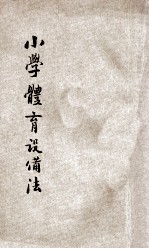 小學體育設備法